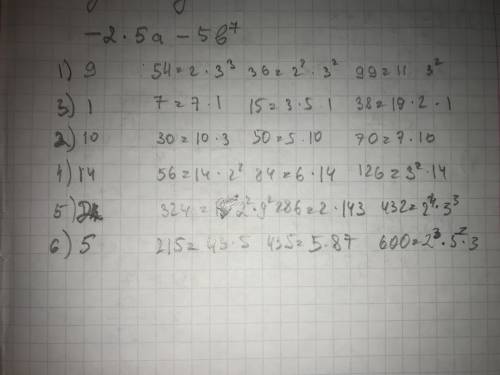 -2·5a - 5b⁷
1) 9 54=2·3³ 36=2²·3² 99=11 3²
3) 1 7=7·1 15=3·5 1 38=19·2·1
2) 10 30=10·3 50=5·10 70=7·10
4) 14 56=14·2² 84=6·14 126=3²·14
5) 324= 2²·9² 286=2·143 432=2⁴·3³
6) 5 215=43·5 435=5·87 600=2³·5²·3